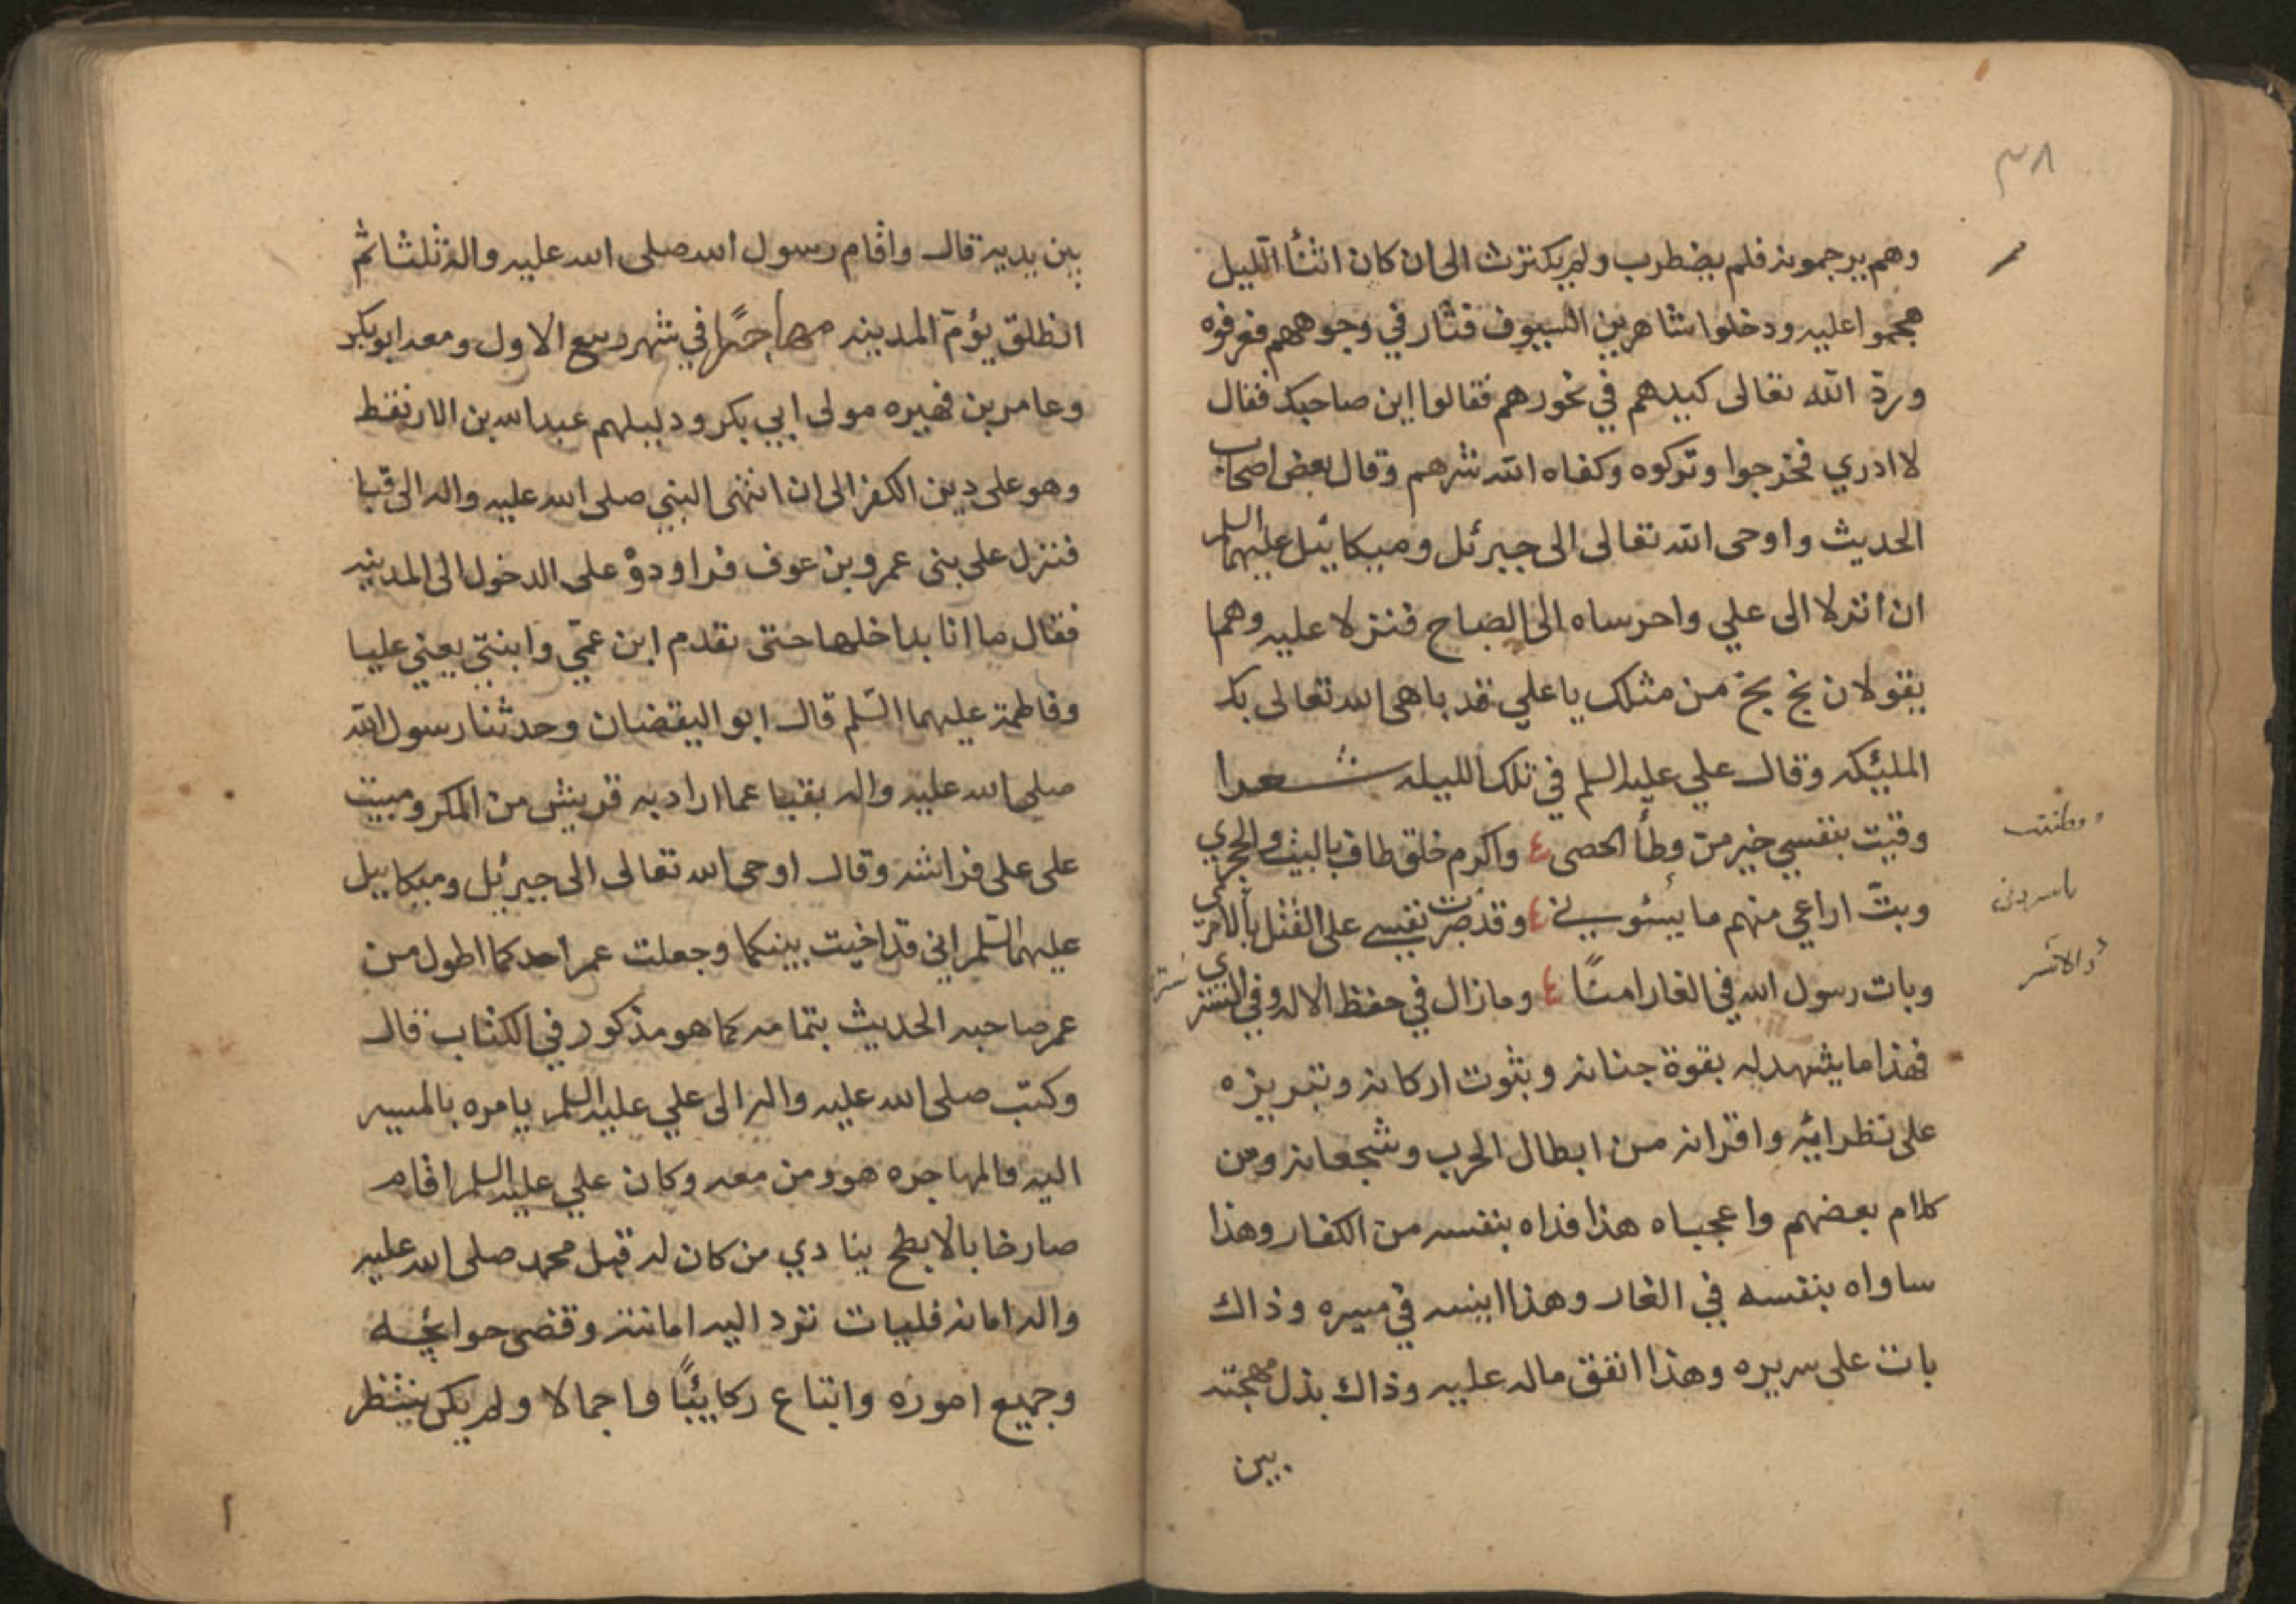 ٣٨
وهم يرجمونه فلم يضطرب ولم يكترث الى ان كان اثنآ الليل
هجموا عليه ودخلوا شاهرين السيوف فثار في وجوههم فعرفوه
وردّ الله تعالى كيدهم في نحورهم فقالوا اين صاحبك فقال
لا ادري فخرجوا وتركوه وكفاه الله شرهم وقال بعض اصحاب
الحديث واوحى الله تعالى الى جبرئل وميكائيل عليهما السلم
ان انزلا الى علي واحرساه الى الصباح فنزلا عليه وهما
يقولان بخ بخ من مثلك يا علي قد باهى الله تعالى بك
المليئكه وقال علي عليه السلم في تلك الليله شعرا
وقيت بنفسي خير من وطأ الحصى واكرم خلق طاف بالبيت والحجري
وبتّ اراعي منهم ما يسئوني وقد صبرت نفسي على القتل بالامري
وبات رسول الله في الغار امنًا وما زال في حفظ الاله وفي الستري
ستر
فهذا ما يشهد له بقوة جنانه وبثوت اركانه وتبريزه
على نظرائه واقرانه من ابطال الحرب وشجعانه ومن
كلام بعضهم واعجباه هذا فداه بنفسه من الكفار وهذا
ساواه بنفسه في الغار وهذا انيسه في مسيره وذاك
بات على سريره وهذا انفق ماله عليه وذاك بذل مهجته
بين
بين يديه قال واقام رسول الله صلى الله عليه واله ثلثا ثم
انطلق يؤمّ المدينه مهاجرًا في شهر ربيع الاول ومعه ابو بكر
وعامر بن فهيره مولى ابي بكر ودليلهم عبد الله بن الارنقط
وهو على دين الكفر الى ان انتهى النبي صلى الله عليه واله الى قبا
فنزل على بنى عمرو بن عوف فراودوْ على الدخول الى المدينه
فقال ما انا بداخلها حتى تقدم ابن عمّي وابنتي يعني عليا
وفاطمة عليهما السّلم قال ابو اليقضان وحدثنا رسول الله
صلى الله عليه واله بقبا عما اراد به قريش من المكر ومبيت
على على فراشه وقال اوحى الله تعالى الى جبرئل وميكاييل
عليهما السّلم اني قد اخيت بينكما وجعلت عمر احدكما اطول من
عمر صاحبه الحديث بتمامه كما هو مذكور في الكتاب قال
وكتب صلى الله عليه واله الى علي عليه السلم يامره بالمسير
اليه والمهاجره هو ومن معه وكان علي عليه السلم اقام
صارخا بالابطح ينادي من كان له قبل محمد صلى الله عليه
واله امانه فليات نرد اليه امانته وقضى حوائجه
وجميع اموره وابتاع ركايئبًا واجمالا ولم يكن ينتظر